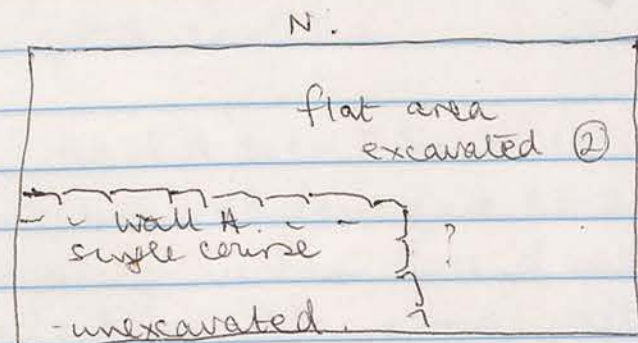 N.
flat area
excavated ②
Wall A.
single course
?
-unexcavated.